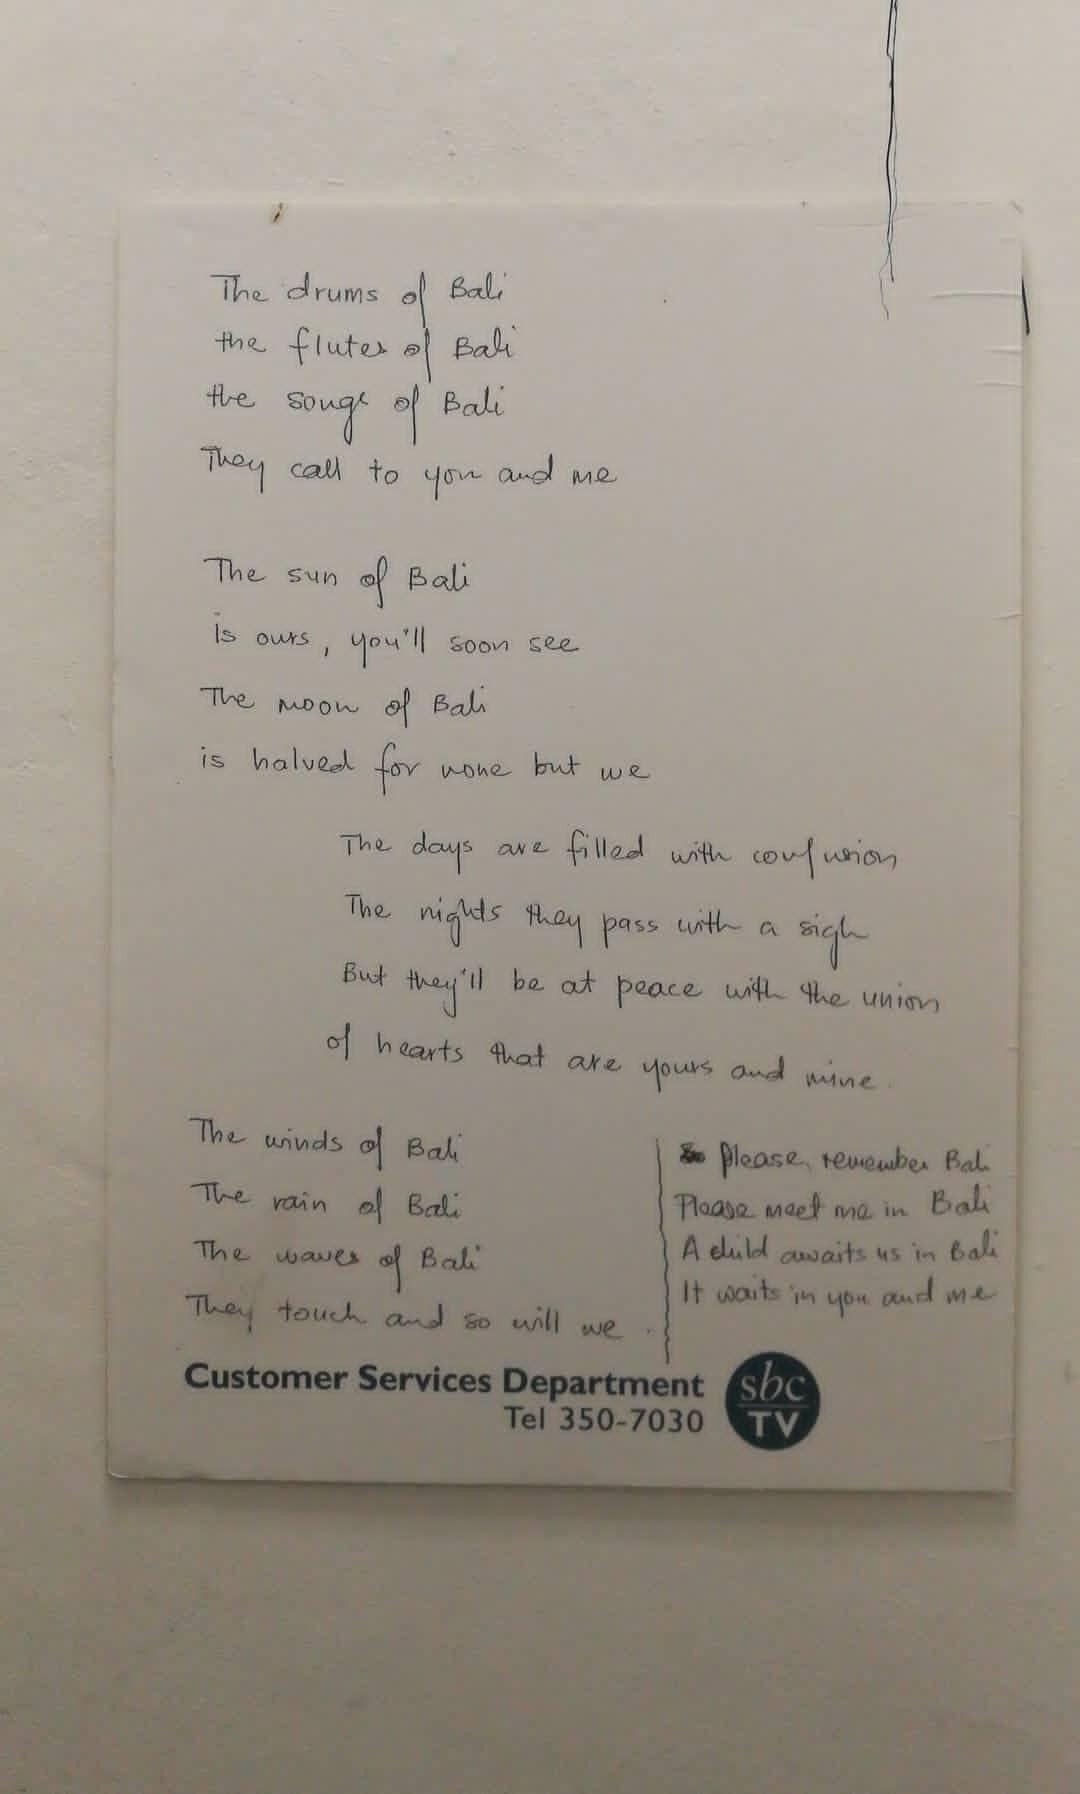 The drums of Bali
the flutes of Bali
the songs of Bali
They call to you and me
The sun of Bali
is ours, you'll soon see
The moon of Bali
is halved for none but we
The days are filled with confusion
The nights they pass with a sigh
But they'll be at peace with the union
of hearts that are yours and mine.
The winds of Bali
The rain of Bali
The waves of Bali
They touch and so will we.
Please, remember Bali
Please meet me in Bali
A child awaits us in Bali
It waits in you and me
Customer Services Department
Tel 350-7030
sbc
TV